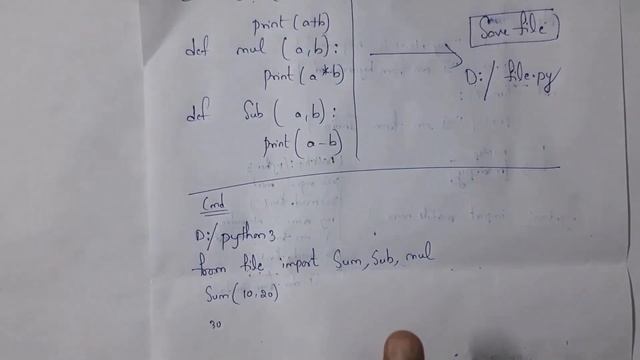 print(a+b)
def mul (a,b):
print(a*b)
def Sub (a,b):
print(a-b)
Save file
D:/ file.py
Cmd
D:/python3
from file import Sum, Sub, mul
Sum(10,20)
30